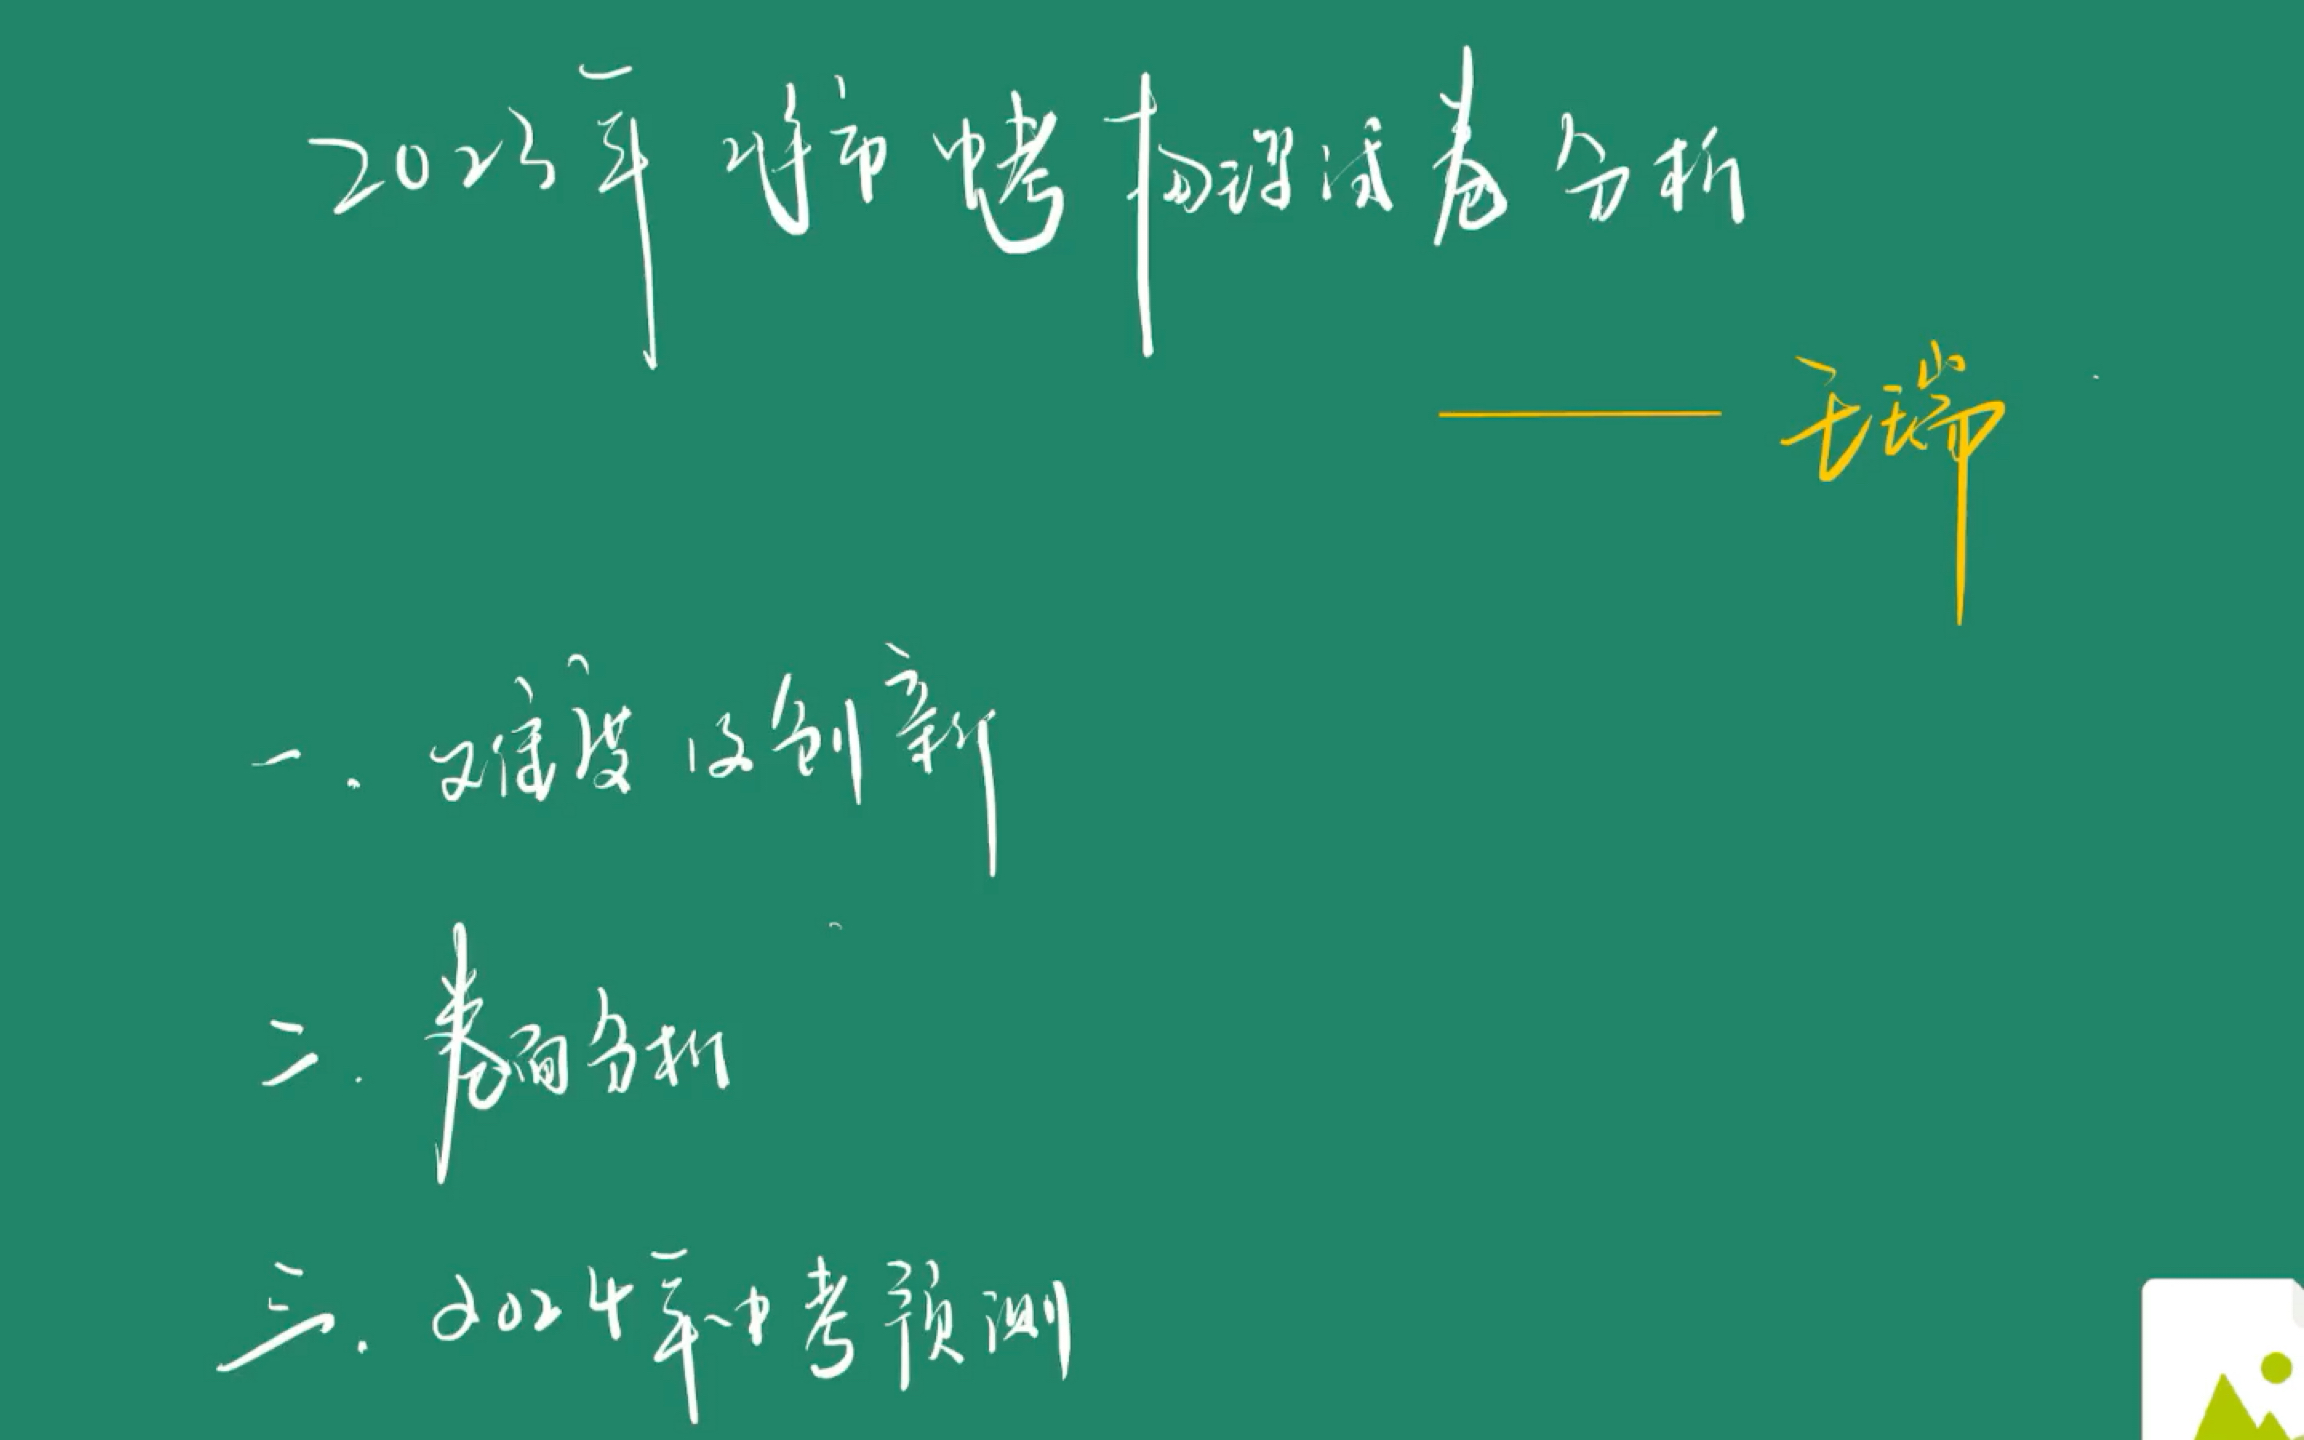 2023年 市中考物理试卷分析
—— 瑞
一. 难度及创新
二. 卷面分析
三. 2024年中考预测